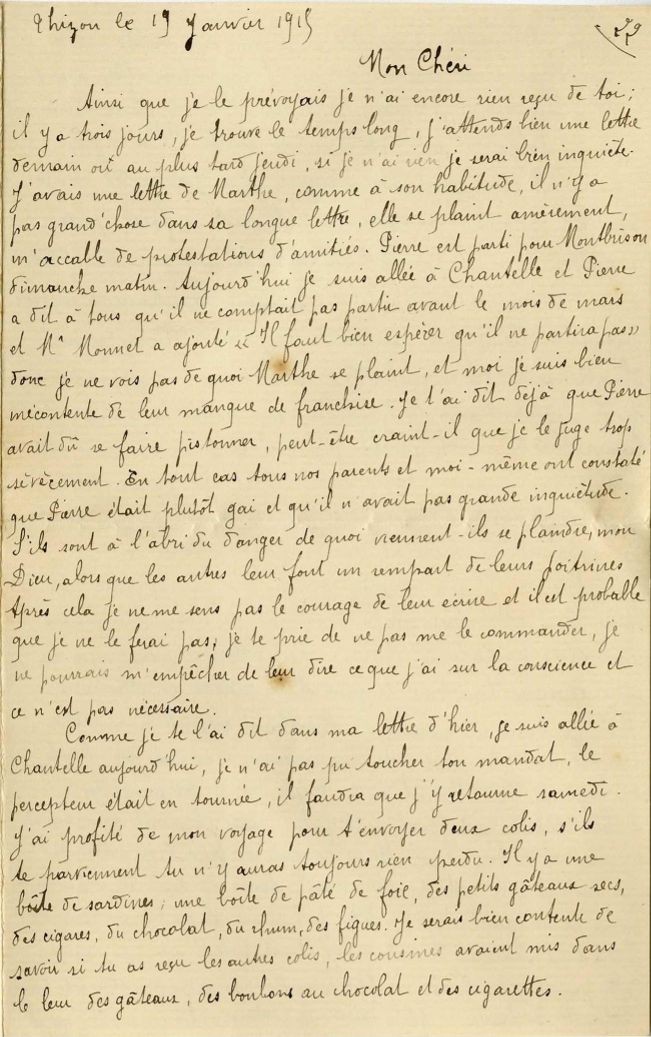 Thizon le 19 Janvier 1915
Mon Chéri
Ainsi que je le prévoyais je n'ai encore rien reçu de toi ;
il y a trois jours, je trouve le temps long, j'attends bien une lettre
demain ou au plus tard jeudi, si je n'ai rien je serai bien inquiète.
J'avais une lettre de Marthe, comme à son habitude, il n'y a
pas grand'chose dans sa longue lettre, elle se plaint amèrement,
m'accable de protestations d'amitiés. Pierre est parti pour Montbrison
dimanche matin. Aujourd'hui je suis allée à Chantelle et Pierre
a dit à tous qu'il ne comptait pas partir avant le mois de mars
et Mr Monnet a ajouté « Il faut bien espérer qu'il ne partira pas »
donc je ne vois pas de quoi Marthe se plaint, et moi je suis bien
mécontente de leur manque de franchise. Je t'ai dit déjà que Pierre
avait dû se faire pistonner, peut-être craint-il que je le juge trop
sévèrement. En tout cas tous nos parents et moi-même ont constaté
que Pierre était plutôt gai et qu'il n'avait pas grande inquiétude.
S'ils sont à l'abri du danger de quoi viennent-ils se plaindre, mon
Dieu, alors que les autres leur font un rempart de leurs poitrines
Après cela je ne me sens pas le courage de leur écrire et il est probable
que je ne le ferai pas, je te prie de ne pas me le commander, je
ne pourrais m'empêcher de leur dire ce que j'ai sur la conscience et
ce n'est pas nécessaire.
Comme je te l'ai dit dans ma lettre d'hier, je suis allée à
Chantelle aujourd'hui, je n'ai pas pu toucher ton mandat, le
percepteur était en tournée, il faudra que j'y retourne samedi.
J'ai profité de mon voyage pour t'envoyer deux colis, s'ils
te parviennent tu n'y auras toujours rien perdu. Il y a une
boîte de sardines, une boîte de pâté de foie, des petits gâteaux secs,
des cigares, du chocolat, du rhum, des figues. Je serais bien contente de
savoir si tu as reçu les autres colis, les cousines avaient mis dans
le leur des gâteaux, des bonbons au chocolat et des cigarettes.